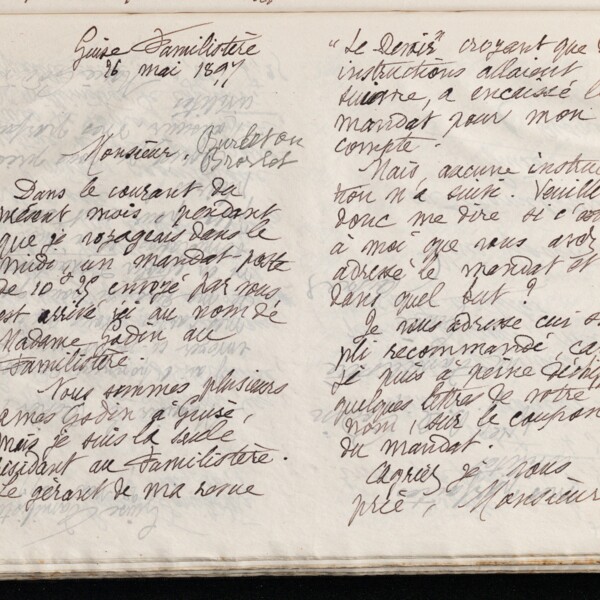 Guise Familistère
26 mai 1897
Monsieur,
Dans le courant du
présent mois, pendant
que je voyageais dans le
midi un mandat poste
de 10f 95 envoyé par vous
est arrivé ici au nom de
Madame Godin au
Familistère.
Nous sommes plusieurs
dames Godin à Guise,
mais je suis la seule
résidant au Familistère.
Le gérant de ma revue
"Le Devoir" croyant que
instructions allaient
suivre, a encaissé l
mandat pour mon
compte.
Mais, aucune instruc
tion n'a suivi. Veuille
donc me dire si c'est
à moi que vous avez
adressé le mandat et
dans quel but ?
Je vous adresse ceci s
pli recommandé, ca
je puis à peine déchif
quelques lettres de votre
nom, sur le coupon
du mandat.
Agréez je vous
prie, Monsieur